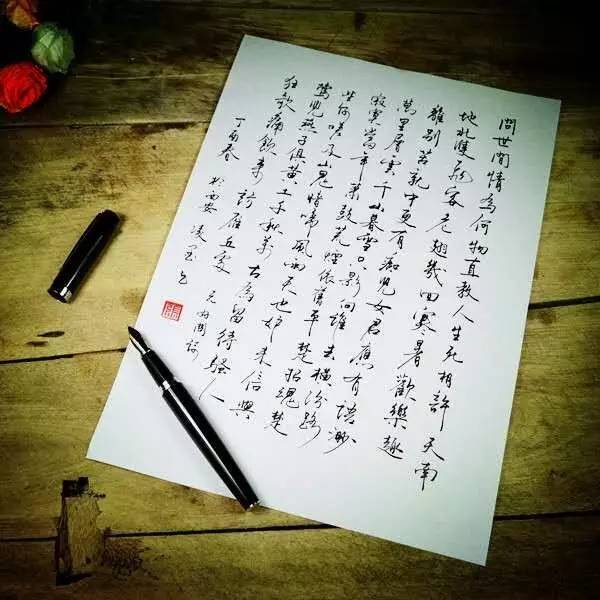 問世間情為何物直教人生死相許天南
地北雙飛客老翅幾回寒暑歡樂趣
離別苦就中更有痴兒女君應有語渺
萬里層雲千山暮雪只影向誰去橫汾路
寂寞當年簫鼓荒煙依舊平楚招魂楚
些何嗟及山鬼暗啼風雨天也妒未信與
鶯兒燕子俱黃土千秋萬古為留待騷人
狂歌痛飲來訪雁丘處 元好問詞
丁酉春 於西安 凌